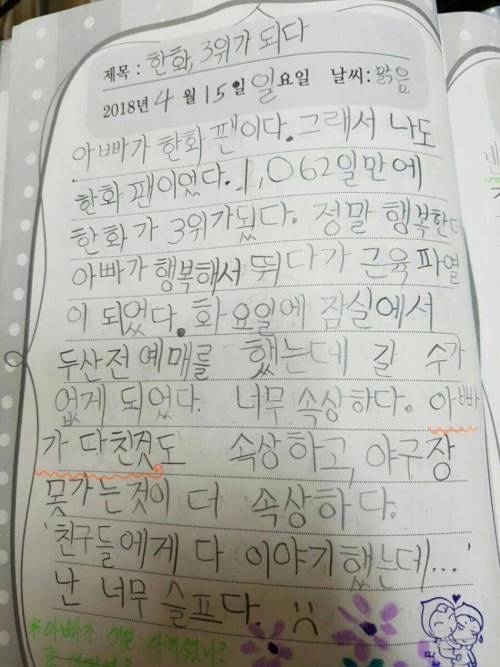 제목 : 한화, 3위가 되다
2018년 4월 15일 일요일 날씨: 맑음
아빠가 한화 팬이다. 그래서 나도
한화 팬이었다. 1,062일만에
한화가 3위가됬다. 정말 행복한데
아빠가 행복해서 뛰다가 근육파열
이 되었다. 화요일에 잠실에서
두산전 예매를 했는데 갈 수가
없게 되었다. 너무 속상하다. 아빠
가 다친것도 속상하고, 야구장
못가는것이 더 속상하다.
'친구들에게 다 이야기했는데...'
난 너무 슬프다. :(